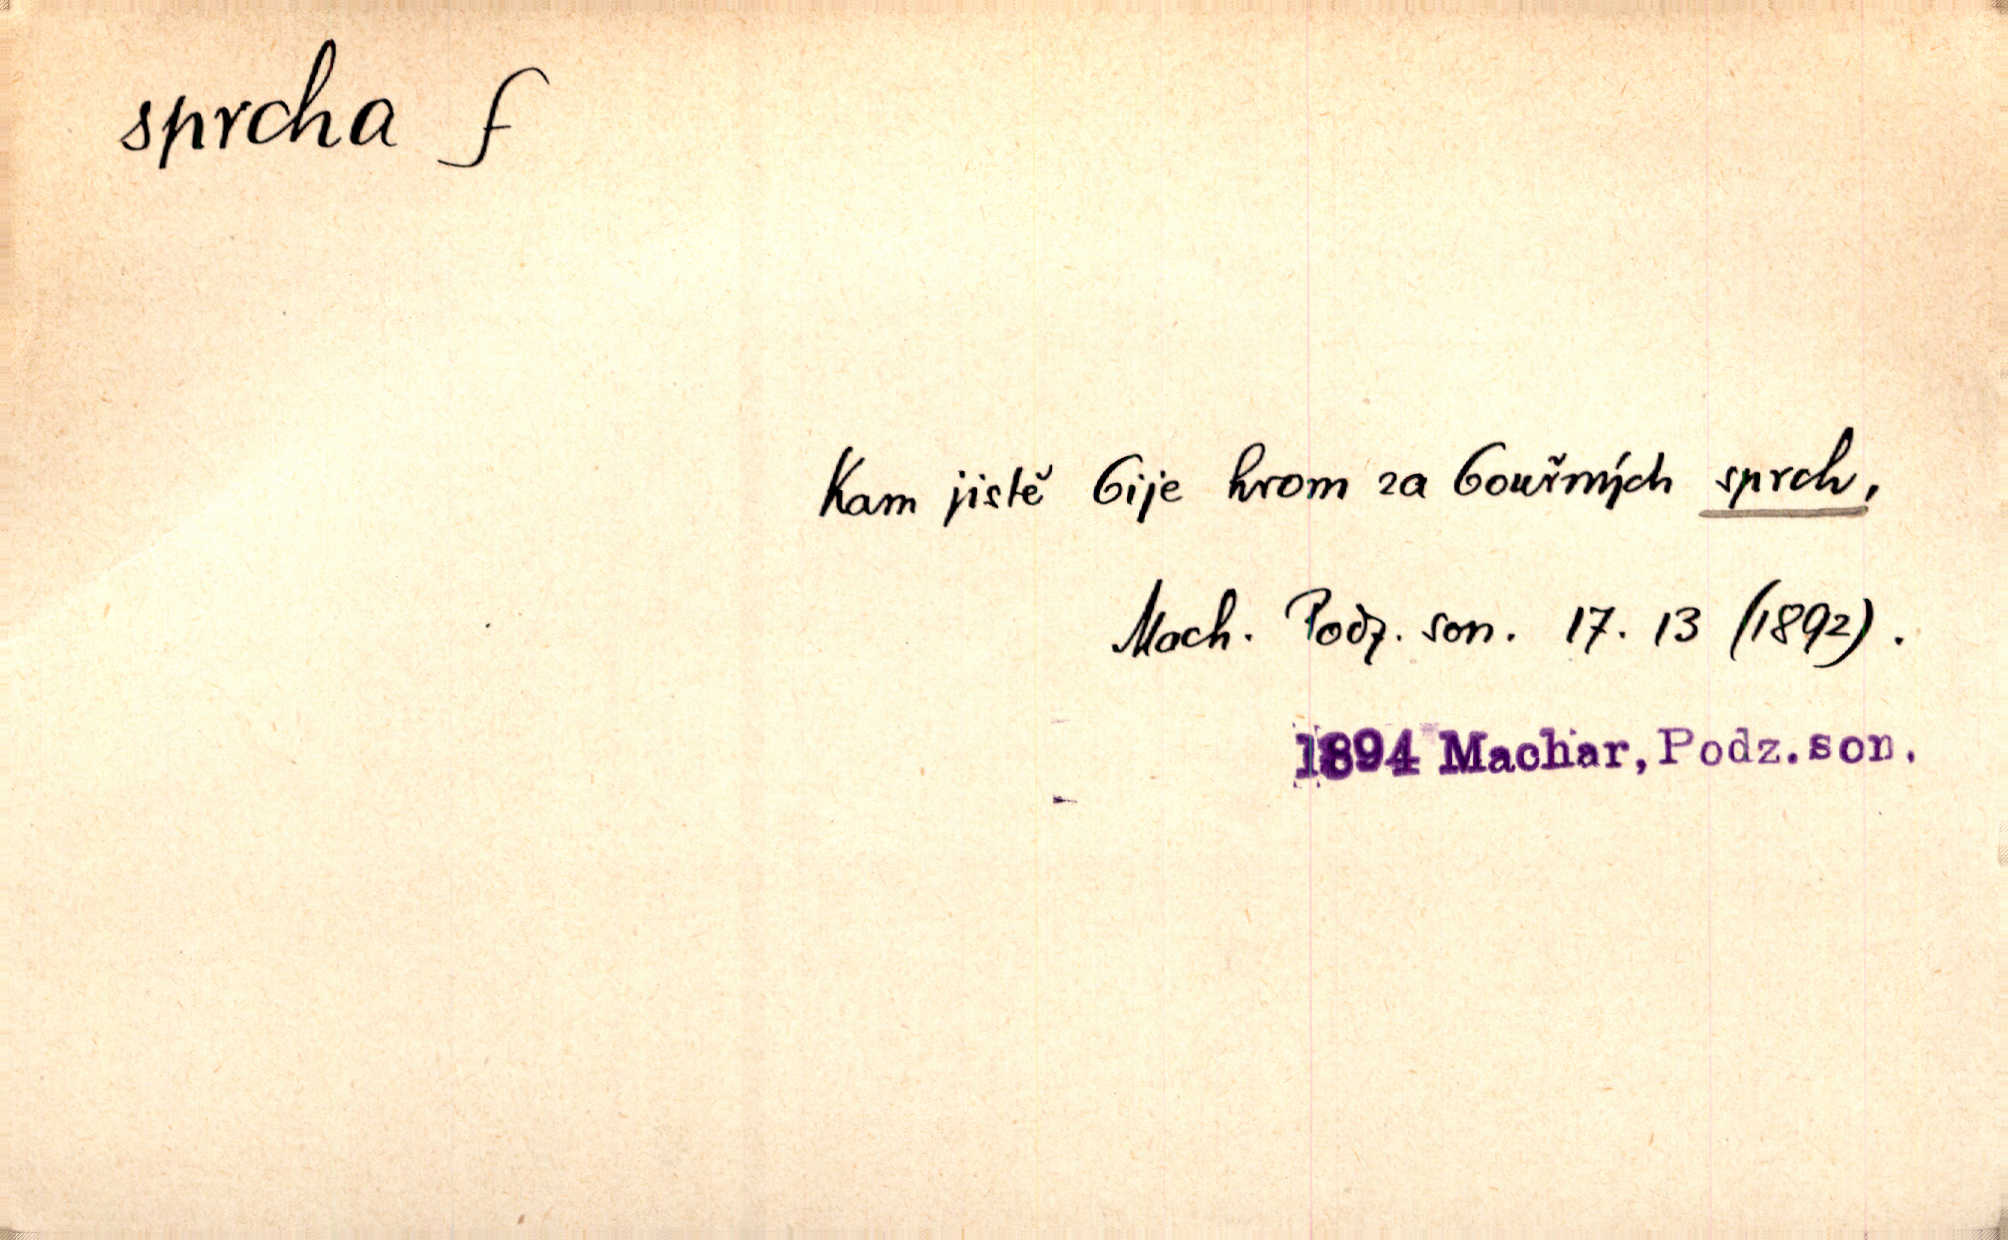 sprcha f
Kam jistě bije hrom za bouřných sprch,
Mach. Podz. son. 17. 13 (1892).
1894 Machar, Podz. son.